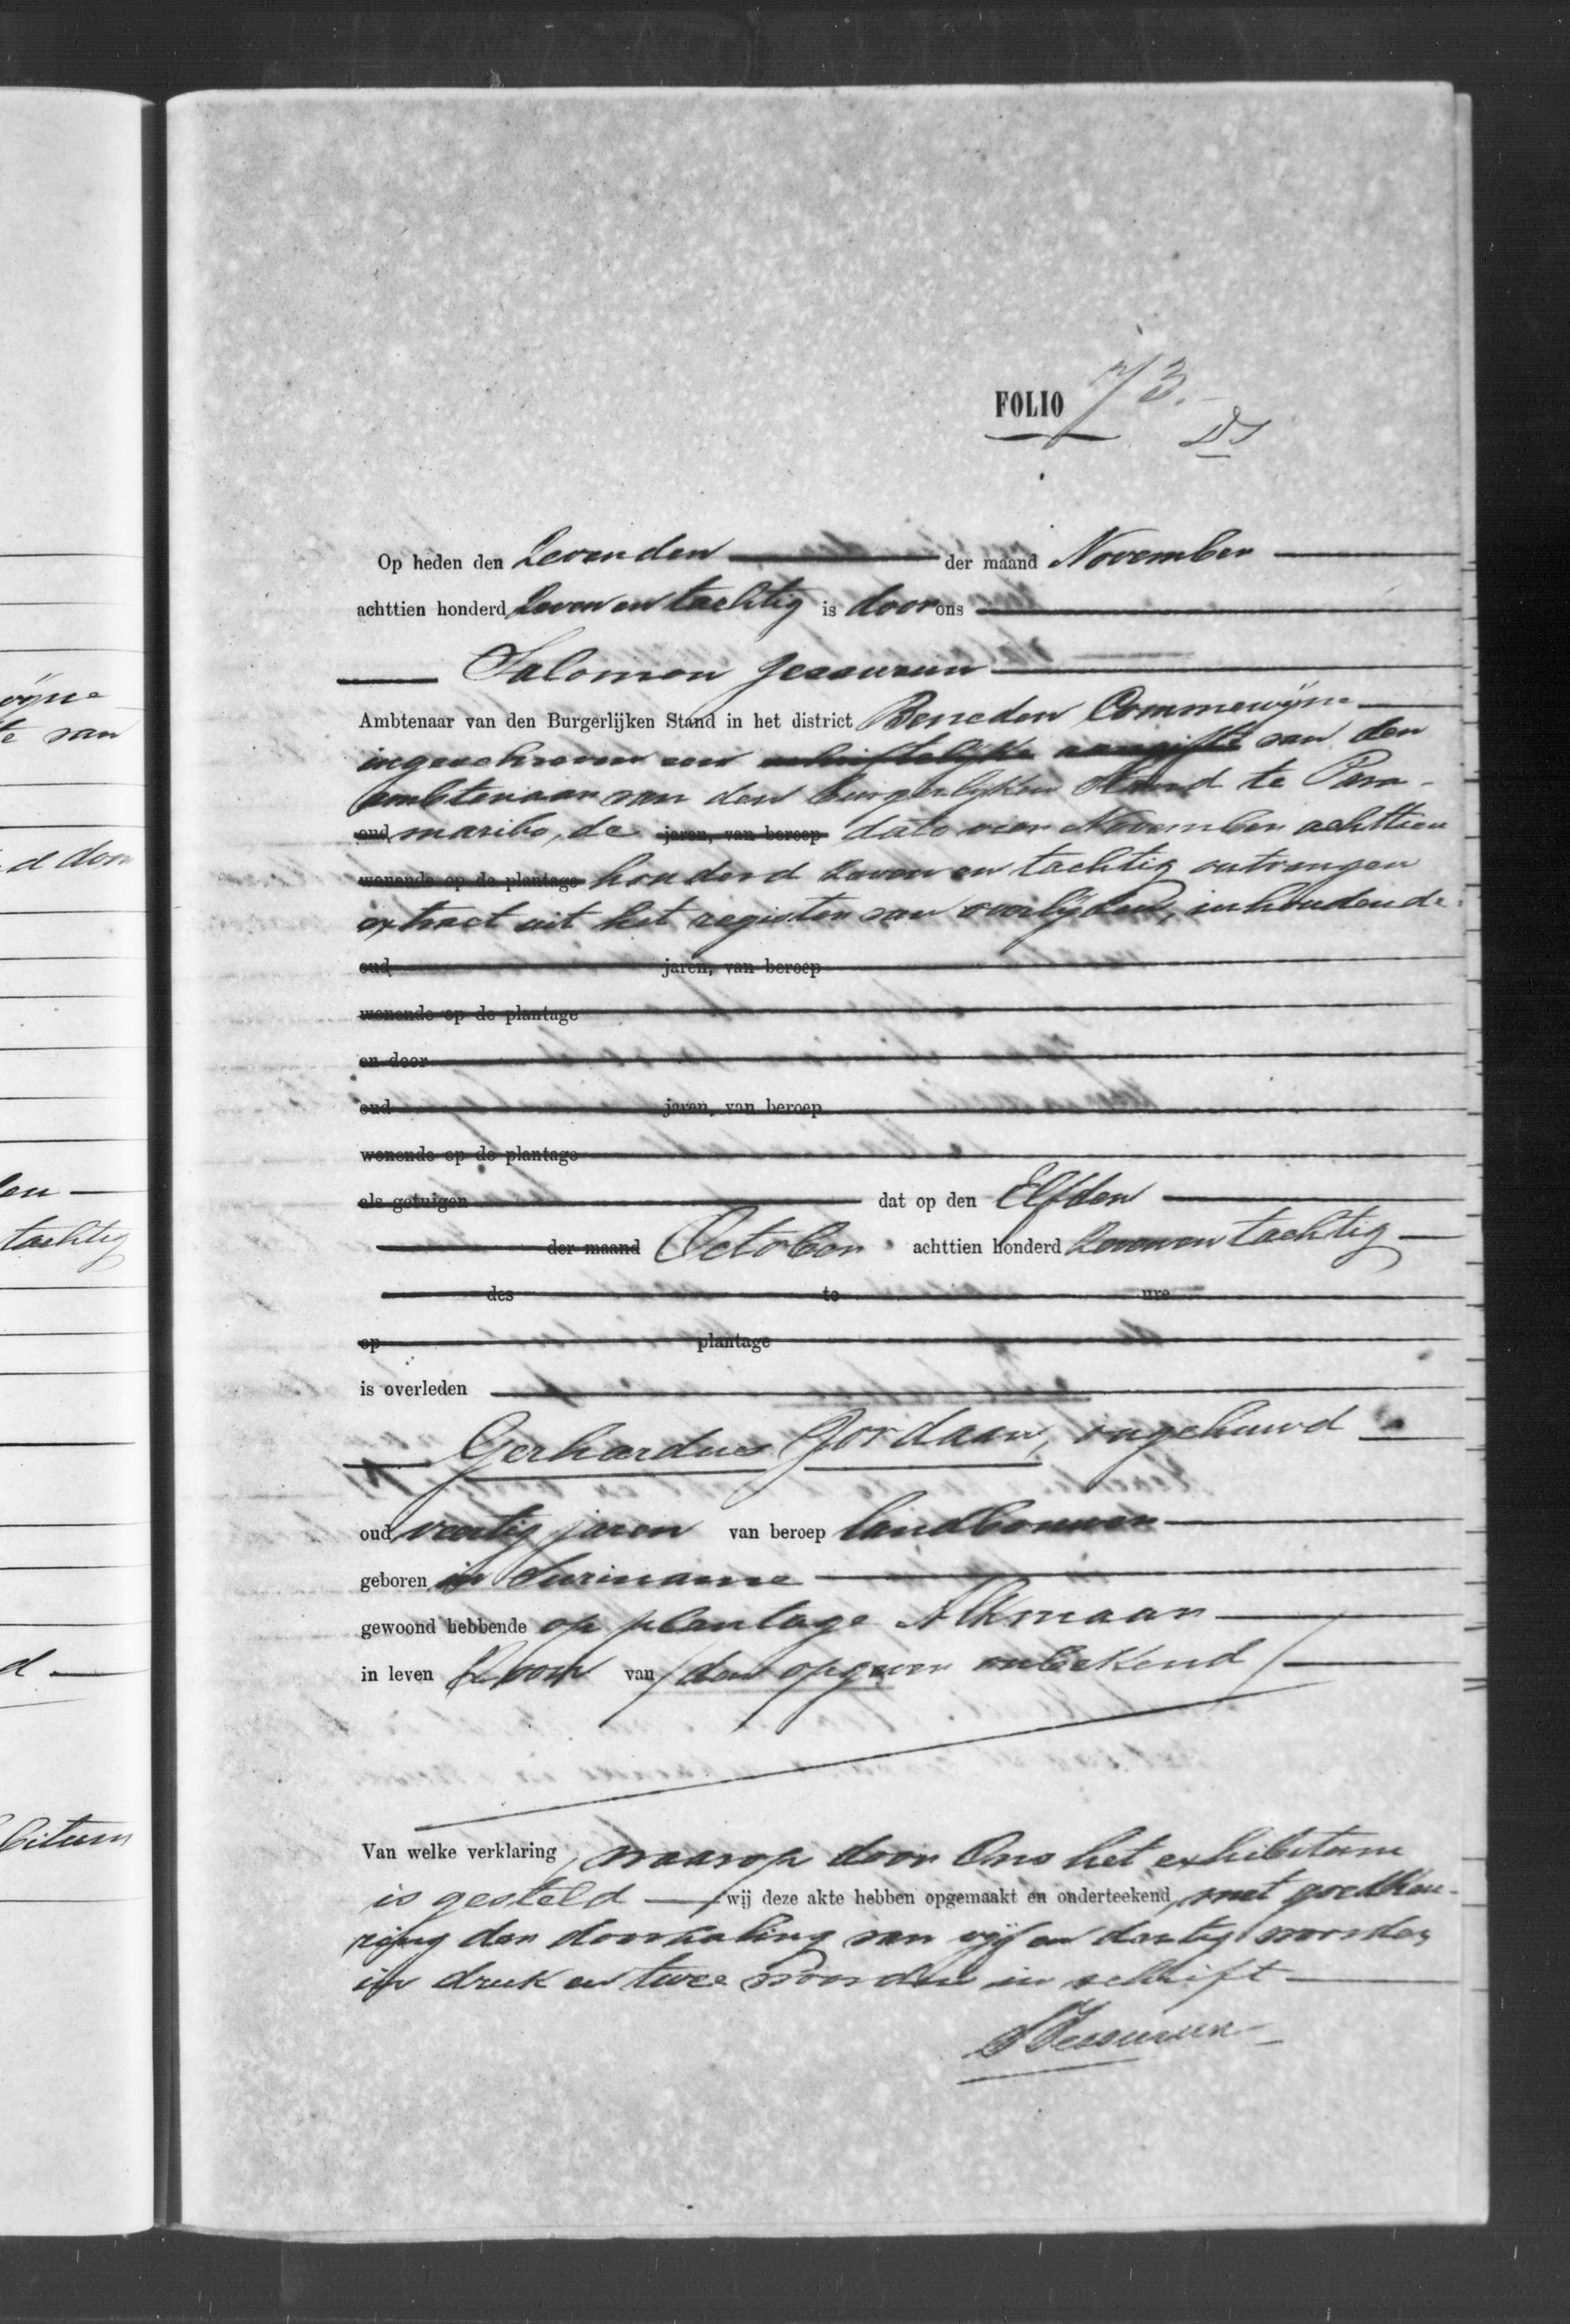 FOLIO 73.
Op heden den Zevenden der maand November
achttien honderd Zeven en tachtig is door ons
Salomon Jessurun
Ambtenaar van den Burgerlijken Stand in het district Beneden Commewijne
ingeschreven een schriftelijke aangifte van den
ambtenaar van den burgerlijken Stand te Para-
oud maribo, de jaren, van beroep dato vier November achttien
wonende op de plantage honderd zeven en tachtig ontvangen
extract uit het register van overlijden, inhoudende
oud jaren, van beroep
wonende op de plantage
en door
oud jaren, van beroep
wonende op de plantage
als getuigen dat op den Elfden
der maand October achttien honderd Zeven en tachtig
des te ure
op plantage
is overleden
Gerhardus Jordaan, ongehuwd
oud veertig jaren van beroep landbouwer
geboren in Suriname
gewoond hebbende op plantage Alkmaar
in leven Zoon van /den opgever onbekend/
Van welke verklaring, waarop door Ons het exhibitum
is gesteld wij deze akte hebben opgemaakt en onderteekend, met goedkeu-
ring der doorhaling van vijf en dertig woorden
in druk en twee woorden in schrift
S Jessurun
öijne
te van
d door
len
tachtig
d
bitum